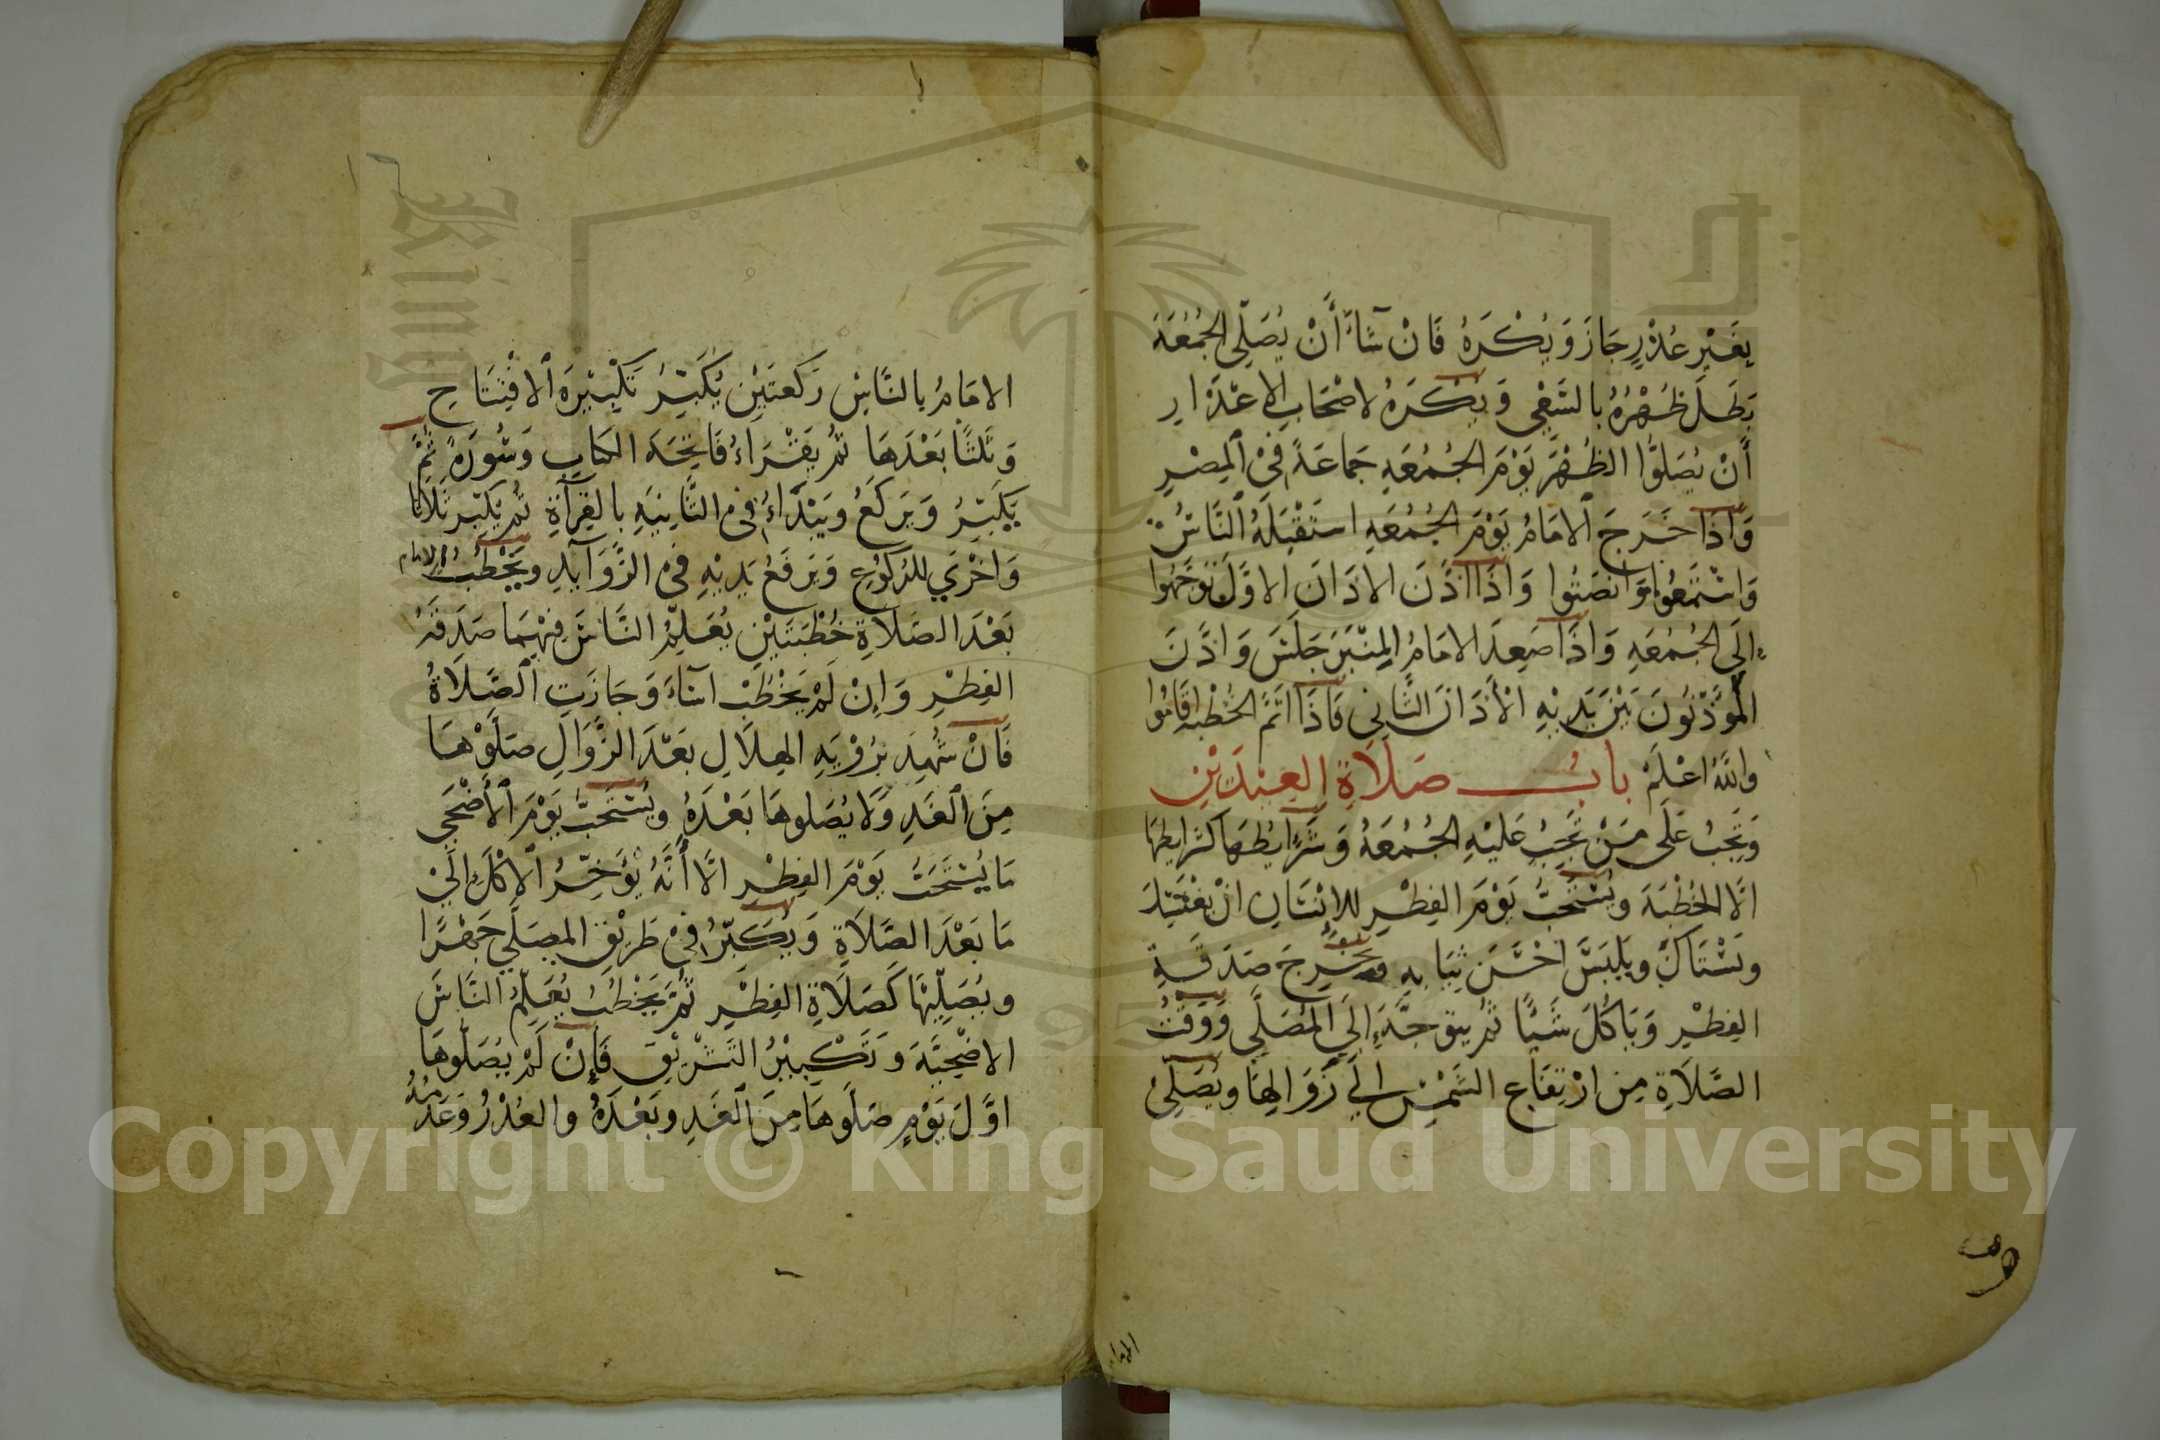 بِغَيْرِ عُذْرٍ جَازَ وَيُكْرَهُ فَانْ شَاءَ أَنْ يُصَلِّى الجُمُعَةَ
بَطَلَ ظُهْرُهُ بالسَّعْىِ وَيُكْرَهُ لاصْحَابِ الاعْذَارِ
أَنْ يُصَلُّوا الظُهْرَ يَوْمَ الجُمُعَهِ جَماعَةً فِىْ المِصْرِ
وَاذَا خَرَجَ الامَامُ يَوْمَ الجُمُعَهِ استَقْبَلَهُ النَّاسُ
وَاسْتَمَعُوا وَانْصَتُوا وَاذَا اذَّنَ الاذَانَ الاوَّلَ تَوَجَّهُوا
الَى الجُمُعَهِ وَاذَا صَعِدَ الامَامُ المِنْبَرَ جَلَسَ وَاذَّنَ
المُؤَذِّنُونَ بَيْنَ يَدَيْهِ الْأَذَانَ الثَّانِى فَاذَا اتَمَّ الخُطْبَه اقَامُوا
واللّهُ اعْلَمْ بابُ صَلَاةِ العِيْدَيْنِ
وَتَجِبُ عَلَى مَنْ تَجِبُ عَلَيْهِ الجُمُعَهُ وَشَرَايطهَا كشرَايطِهَا
الَّا الخُطْبَهَ ويُسْتَحَبُّ يَوْمَ الفِطْرِ للاِنْسَانِ انْ يَغْتَسِلَ
ويَسْتَاكَ ويَلْبَسَ احْسَنَ ثِيَابِهِ ويُخْرِجَ صَدَقَةِ
الفِطْرِ وَيَاكُلَ شَيْئًا ثُمَّ يتوجَّهَ إلَى المُصَلَّى وَوَقْتُ
الصَّلَاةِ مِنْ ارْتِفَاعِ الشَّمْسِ الَى زَوَالِهَا ويُصَلِّى
الامَام
الامَامُ بالنَّاسِ رَكعَتَيْنِ يُكَبِّرُ تَكْبِيْرَةَ الافْتِتَاحِ
وَثَلثًا بَعْدَهَا ثُمَّ يَقْرَاءُ فَاتِحَهَ الكتَابِ وَسُورَةً ثُمَّ
يُكَبِّرُ وَيَركَعُ وَيَبْدَاءُ فِى الثَّانِيَهِ بالقِرَآةِ ثُمَّ يُكَبِّر ثَلَاثًا
وَاخْرَى للرُكُوْعِ وَيَرفَعُ يَدَيْهِ فىِْ الزَّوَآيدِ ويَخْطُبُ الامام
بَعْدَ الصَّلَاةِ خُطْبَتَيْنِ يُعَلِّمُ النَّاسَ فِيْهِمَا صَدَقَهُ
الفِطْرِ وَاِنْ لَمْ يَخْطُبْ اسَاءَ وَجَازَتِ الصَّلَاةُ
فَانْ شُهِدَ بِرُؤْيَهِ الهِلَالِ بَعْدَ الزَّوَالِ صَلَّوْهَا
مِنَ الغَدِ وَلَا يُصَلوهَا بَعْدَهُ ويُسْتَحَبُّ يَوْمَ الأَضْحَى
مَا يُسْتَحَبُّ يَوْمَ الفِطْرِ الَّا أَنَّهُ يُؤَخِّرُ الاكْلَ الَىْ
مَا بَعْدَ الصَّلَاةِ وَيُكَبِّرُ فِىْ طَرِيْقِ المُصَلَّى جَهْرًا
ويُصَلِّيْهَا كَصَلَاةِ الفِطْرِ ثُمَّ يَخْطُبُ يُعَلِّمُ النَّاسَ
الاضْحِيَّهَ وَتَكْبِيْرُ التَشْرِيْقِ فَاِنْ لَمْ يُصَلُّوهَا
اوَّلَ يَوْمٍ صَلَّوهَا مِنَ الغَدِ وبَعْدَهُ والعُذْرُ وَعَدَمُهُ
Copyright © King Saud University